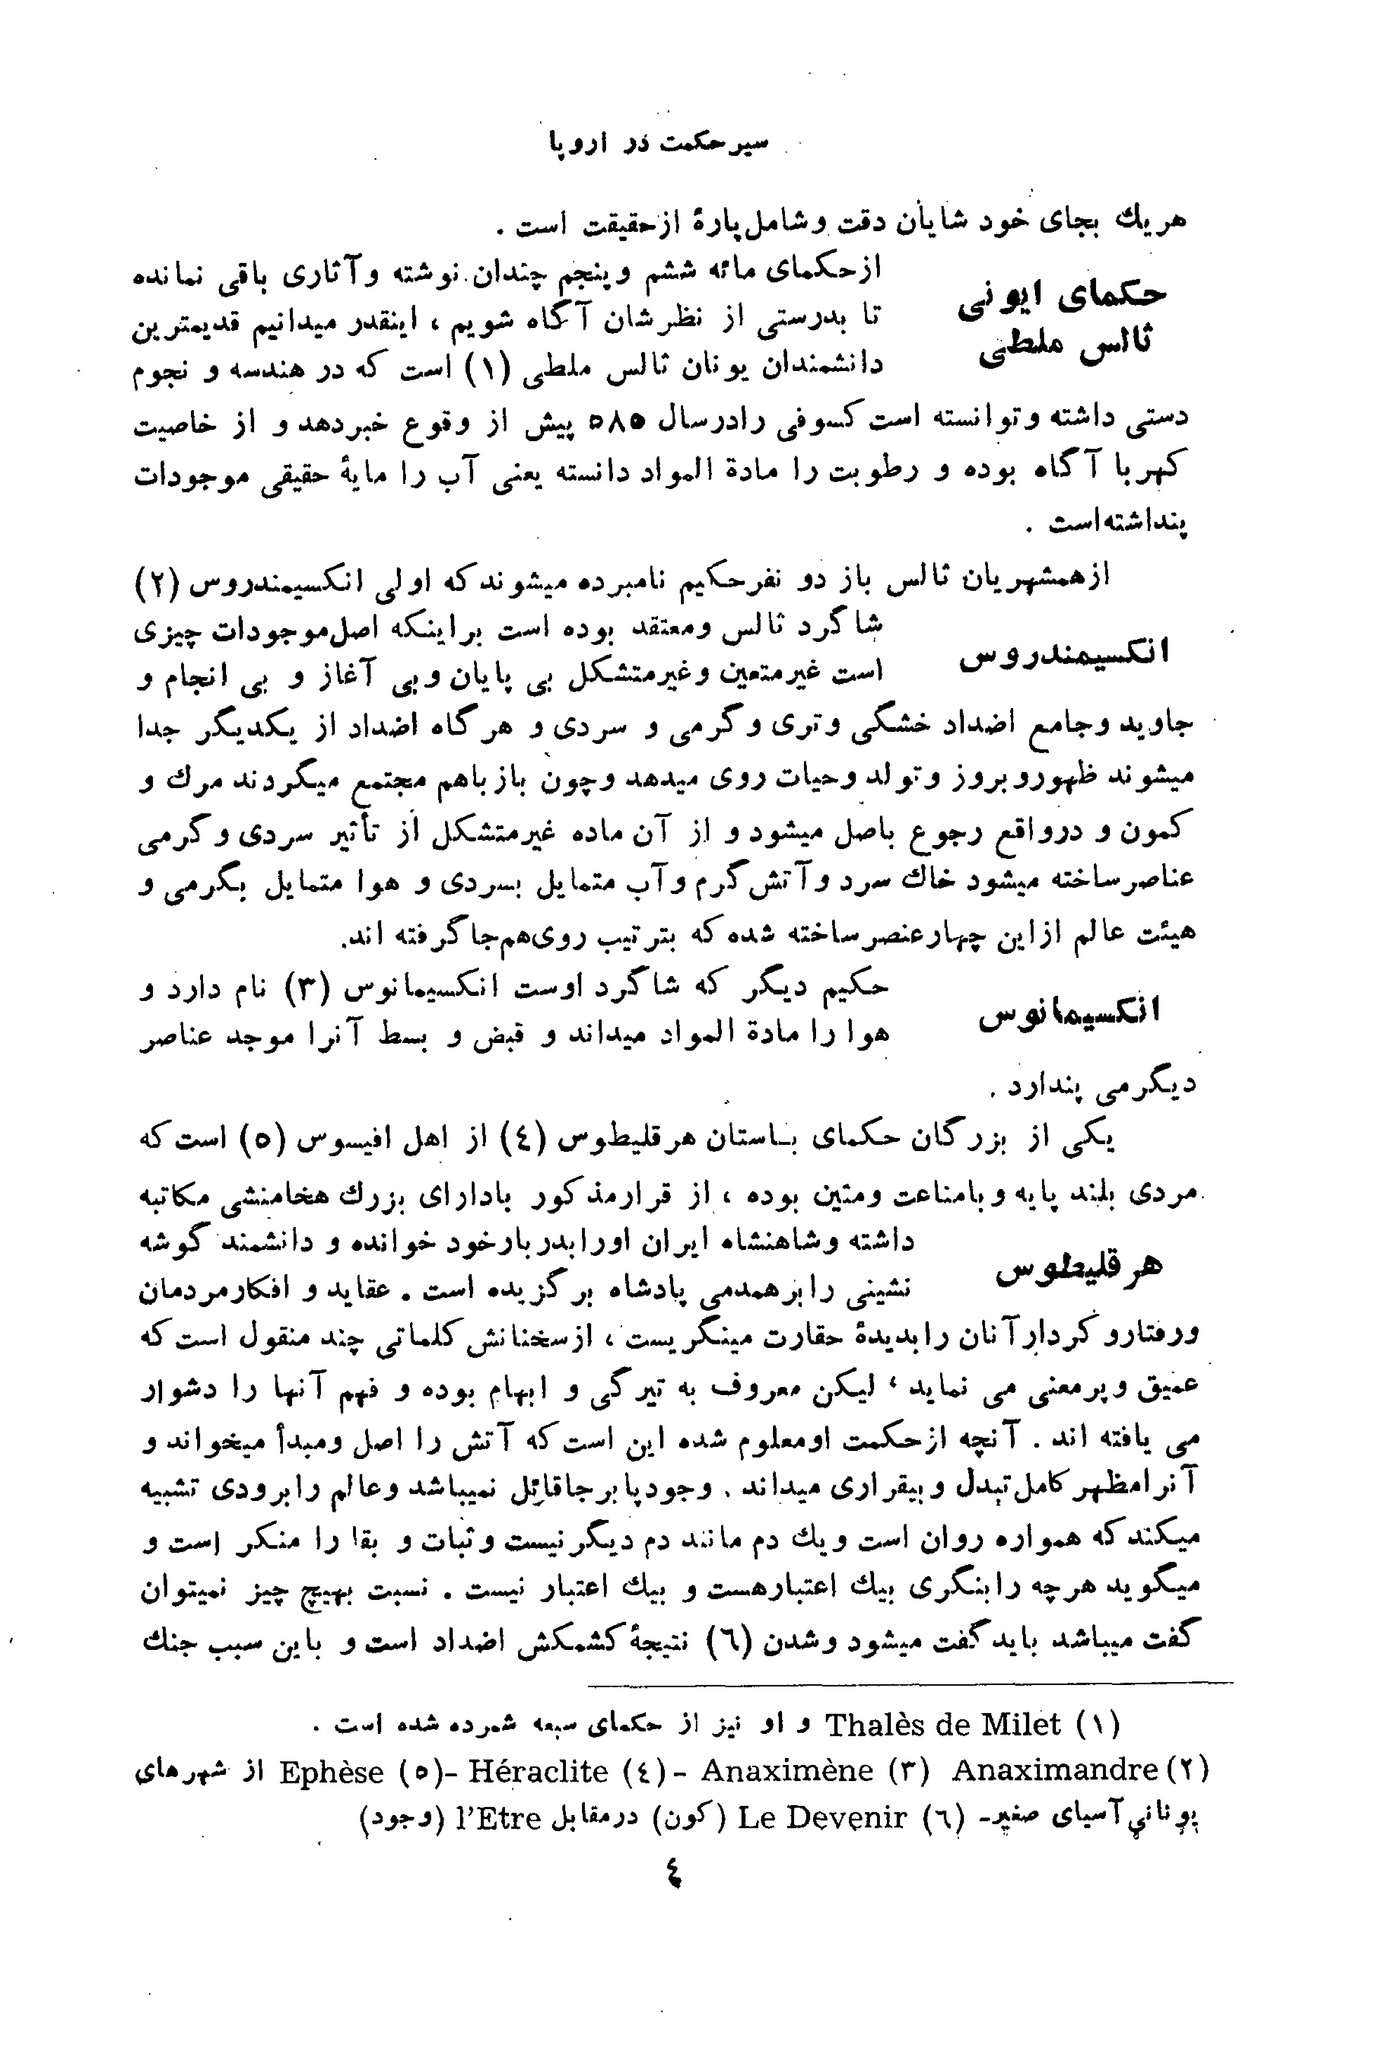 سیر حکمت در اروپا
هر یك بجای خود شایان دقت و شامل پارهٔ از حقیقت است .
حکمای ایونی
ثالس ملطی
از حکمای مائه ششم و پنجم چندان نوشته و آثاری باقی نمانده
تا بدرستی از نظرشان آگاه شویم ، اینقدر میدانیم قدیمترین
دانشمندان یونان ثالس ملطی (۱) است که در هندسه و نجوم
دستی داشته و توانسته است کسوفی را در سال ۵۸۵ پیش از وقوع خبر دهد و از خاصیت
کهربا آگاه بوده و رطوبت را مادة المواد دانسته یعنی آب را مایهٔ حقیقی موجودات
پنداشته است .
از همشهریان ثالس باز دو نفر حکیم نامبرده میشوند که اولی انکسیمندروس (۲)
انکسیمندروس
شاگرد ثالس و معتقد بوده است بر اینکه اصل موجودات چیزی
است غیر متعین و غیر متشکل بی پایان و بی آغاز و بی انجام و
جاوید و جامع اضداد خشگی و تری و گرمی و سردی و هر گاه اضداد از یکدیگر جدا
میشوند ظهور و بروز و تولد و حیات روی میدهد و چون باز باهم مجتمع میگردند مرك و
کمون و در واقع رجوع باصل میشود و از آن ماده غیر متشکل از تأثیر سردی و گرمی
عناصر ساخته میشود خاك سرد و آتش گرم و آب متمایل بسردی و هوا متمایل بگرمی و
هیئت عالم از این چهار عنصر ساخته شده که بترتیب روی هم جا گرفته اند.
انکسیمانوس
حکیم دیگر که شاگرد اوست انکسیمانوس (۳) نام دارد و
هوا را مادة المواد میداند و قبض و بسط آنرا موجد عناصر
دیگر می پندارد .
یکی از بزرگان حکمای باستان هرقلیطوس (٤) از اهل افیسوس (۵) است که
مردی بلند پایه و بامناعت و متین بوده ، از قرار مذکور بادارای بزرك هخامنشی مکاتبه
هرقلیطوس
داشته و شاهنشاه ایران اورا بدربار خود خوانده و دانشمند گوشه
نشینی را بر همدمی پادشاه برگزیده است . عقاید و افکار مردمان
و رفتار و کردار آنان را بدیدهٔ حقارت مینگریست ، از سخنانش کلماتی چند منقول است که
عمیق و پر معنی می نماید ، لیکن معروف به تیرگی و ابهام بوده و فهم آنها را دشوار
می یافته اند . آنچه از حکمت او معلوم شده این است که آتش را اصل و مبدأ میخواند و
آنرا مظهر کامل تبدل و بیقراری میداند . وجود پا بر جا قائل نمیباشد و عالم را برودی تشبیه
میکند که همواره روان است و یك دم مانند دم دیگر نیست و ثبات و بقا را منکر است و
میگوید هر چه را بنگری بیك اعتبار هست و بیك اعتبار نیست . نسبت بهیچ چیز نمیتوان
گفت میباشد باید گفت میشود و شدن (٦) نتیجهٔ کشمکش اضداد است و باین سبب جنك
(۱) Thalès de Milet و او نیز از حکمای سبعه شمرده شده است .
(۲) Anaximandre (۳) Anaximène -(٤) Héraclite -(۵) Ephèse از شهرهای
یونانی آسیای صغیر- (٦) Le Devenir (کون) در مقابل l'Etre (وجود)
٤